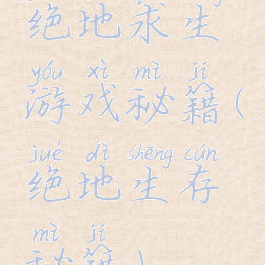 绝地求生
yóu xì mì jí
游戏秘籍(
jué dì shēng cún
绝地生存
mì jí
秘籍)